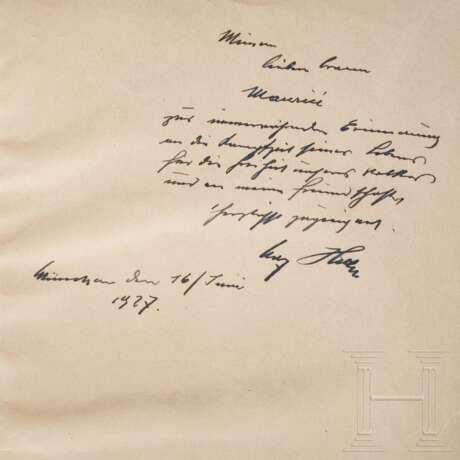 Meinem
lieben braven
Maurice
zur immerwährenden Erinnerung
an die Kampfzeit seines Lebens
für die Freiheit unseres Volkes
und an meine Freundschaft
herzlichst zugeeignet.
München den 16/Juni
1927.
H